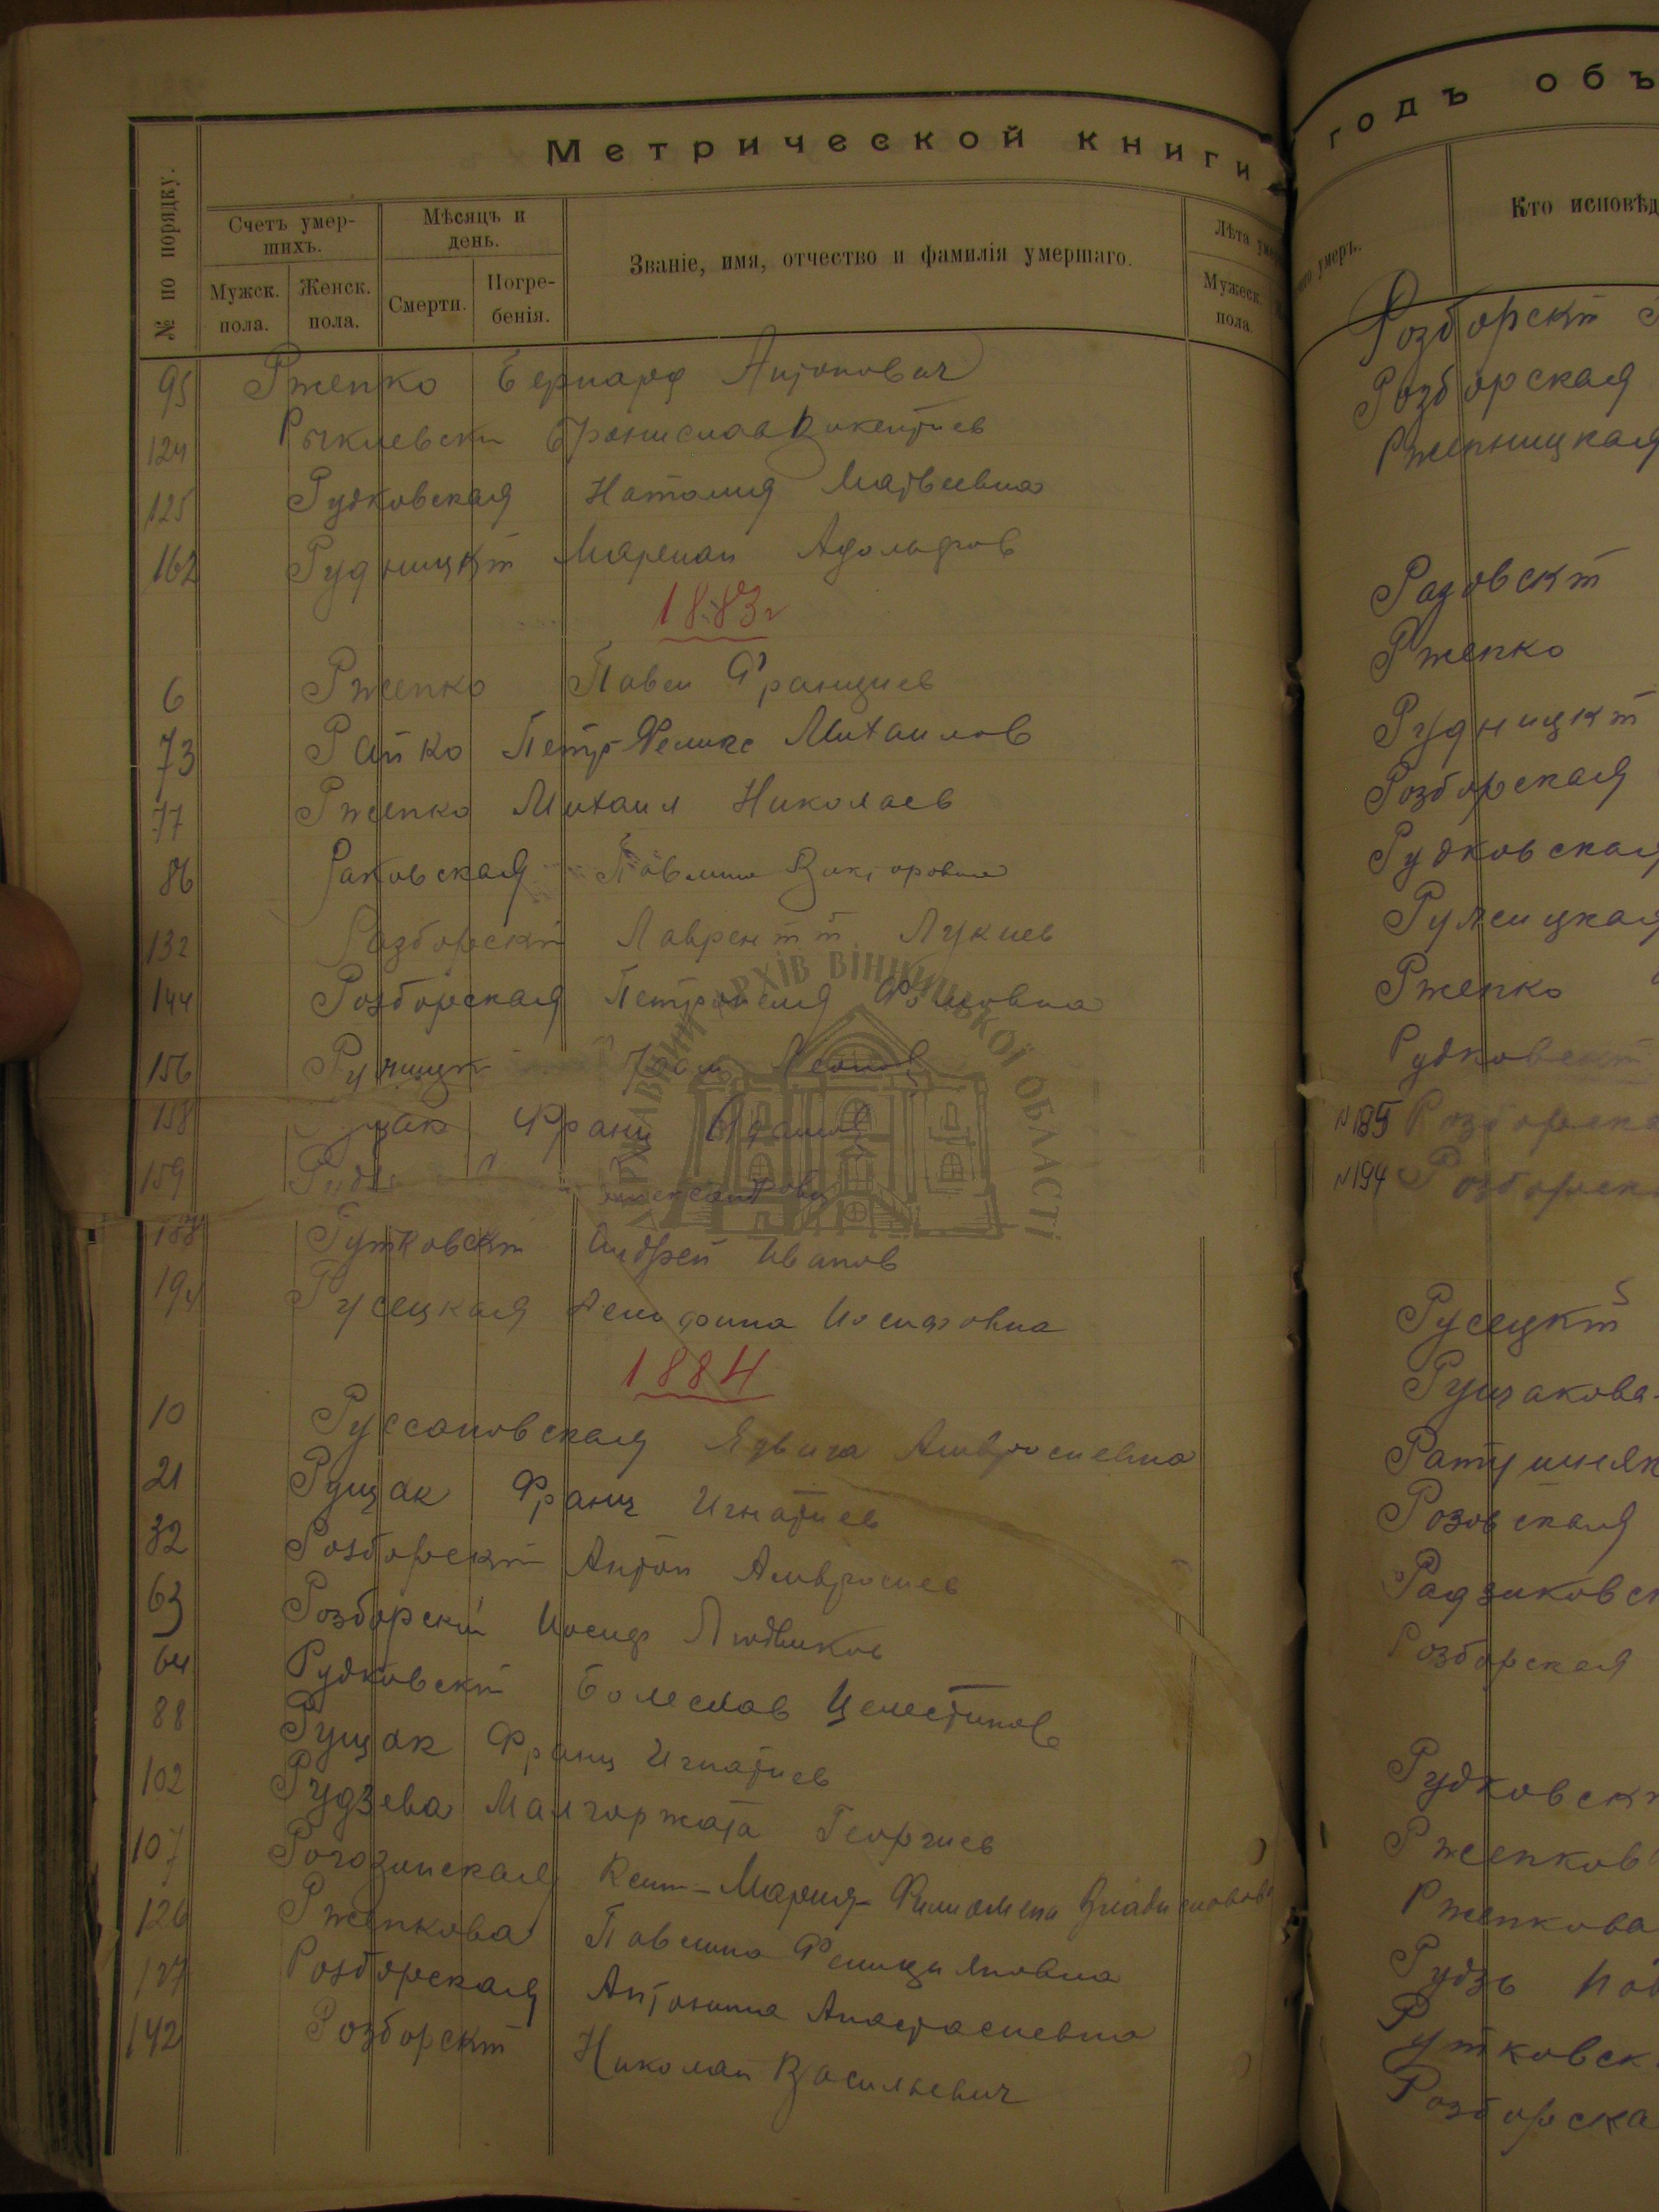 Метрической книги
№ по порядку.
Счетъ умер-
шихъ.
Мужск.
пола.
Женск.
пола.
Мѣсяцъ и
день.
Смерти.
Погре-
бенія.
Званіе, имя, отчество и фамилія умершаго.
Лѣта
Мужеск.
пола.
95 Ржепко Бернард Антонович
124 Рычкиевски Бронислав Викентиев
125 Рудковская Наталия Матвеевна
162 Рудницкій Мариан Адольфов
1883г
6 Ржепко Павел Францнев
73 Райко Петр Феликс Михаилов
77 Ржепко Михаил Николаев
86 Раковская Павлина Викторовна
132 Разборскій Лаврентій Лукиев
144 Розборская Петронелия Фомовна
156
158 Франц Адамов
159 Александрова
188 Рутковскій Андрей Иванов
194 Русецкая Иосифовна
1884
10 Руссановская Ядвига Амвросиевна
21 Рущак Франц Игнатиев
32 Розборскій Антон Амвросиев
63 Розборскій Иосиф Людвиков
64 Рудковскій Болеслав Целестинов
88 Рущак Франц Игнатиев
102 Рудзева Малгоржата Георгиев
107 Рогозинская Мария Филиомена
126 Ржепкова Павлина Фелициановна
127 Розборская Антонина Анастасиевна
142 Розборскій Николай Васильевич
ДЕРЖАВНИЙ АРХІВ ВІННИЦЬКОЇ ОБЛАСТІ
годъ объ
умеръ.
Кто исповѣд
Розборскій
Розборская
Ржепницкая
Разовскій
Ржепко
Рудницкій
Розборская
Рудковская
Ржепко
Рудковскій
№185 Розборска
№194 Розборск
Русецкій
Рущакова
Ратушняк
Розовская
Радзиковск
Розборская
Рудковск
Ржепков
Ржепкова
Рудзь
Рутковск
Розборска